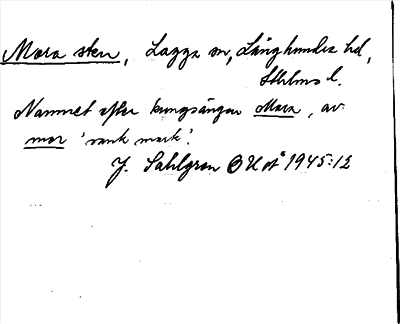 Mora sten, Lagga sn, Långhundra hd,
Sthlms l.
Namnet efter kungsängen Mora, av
mor 'sank mark'.
J. Sahlgren OUÅ 1945:12